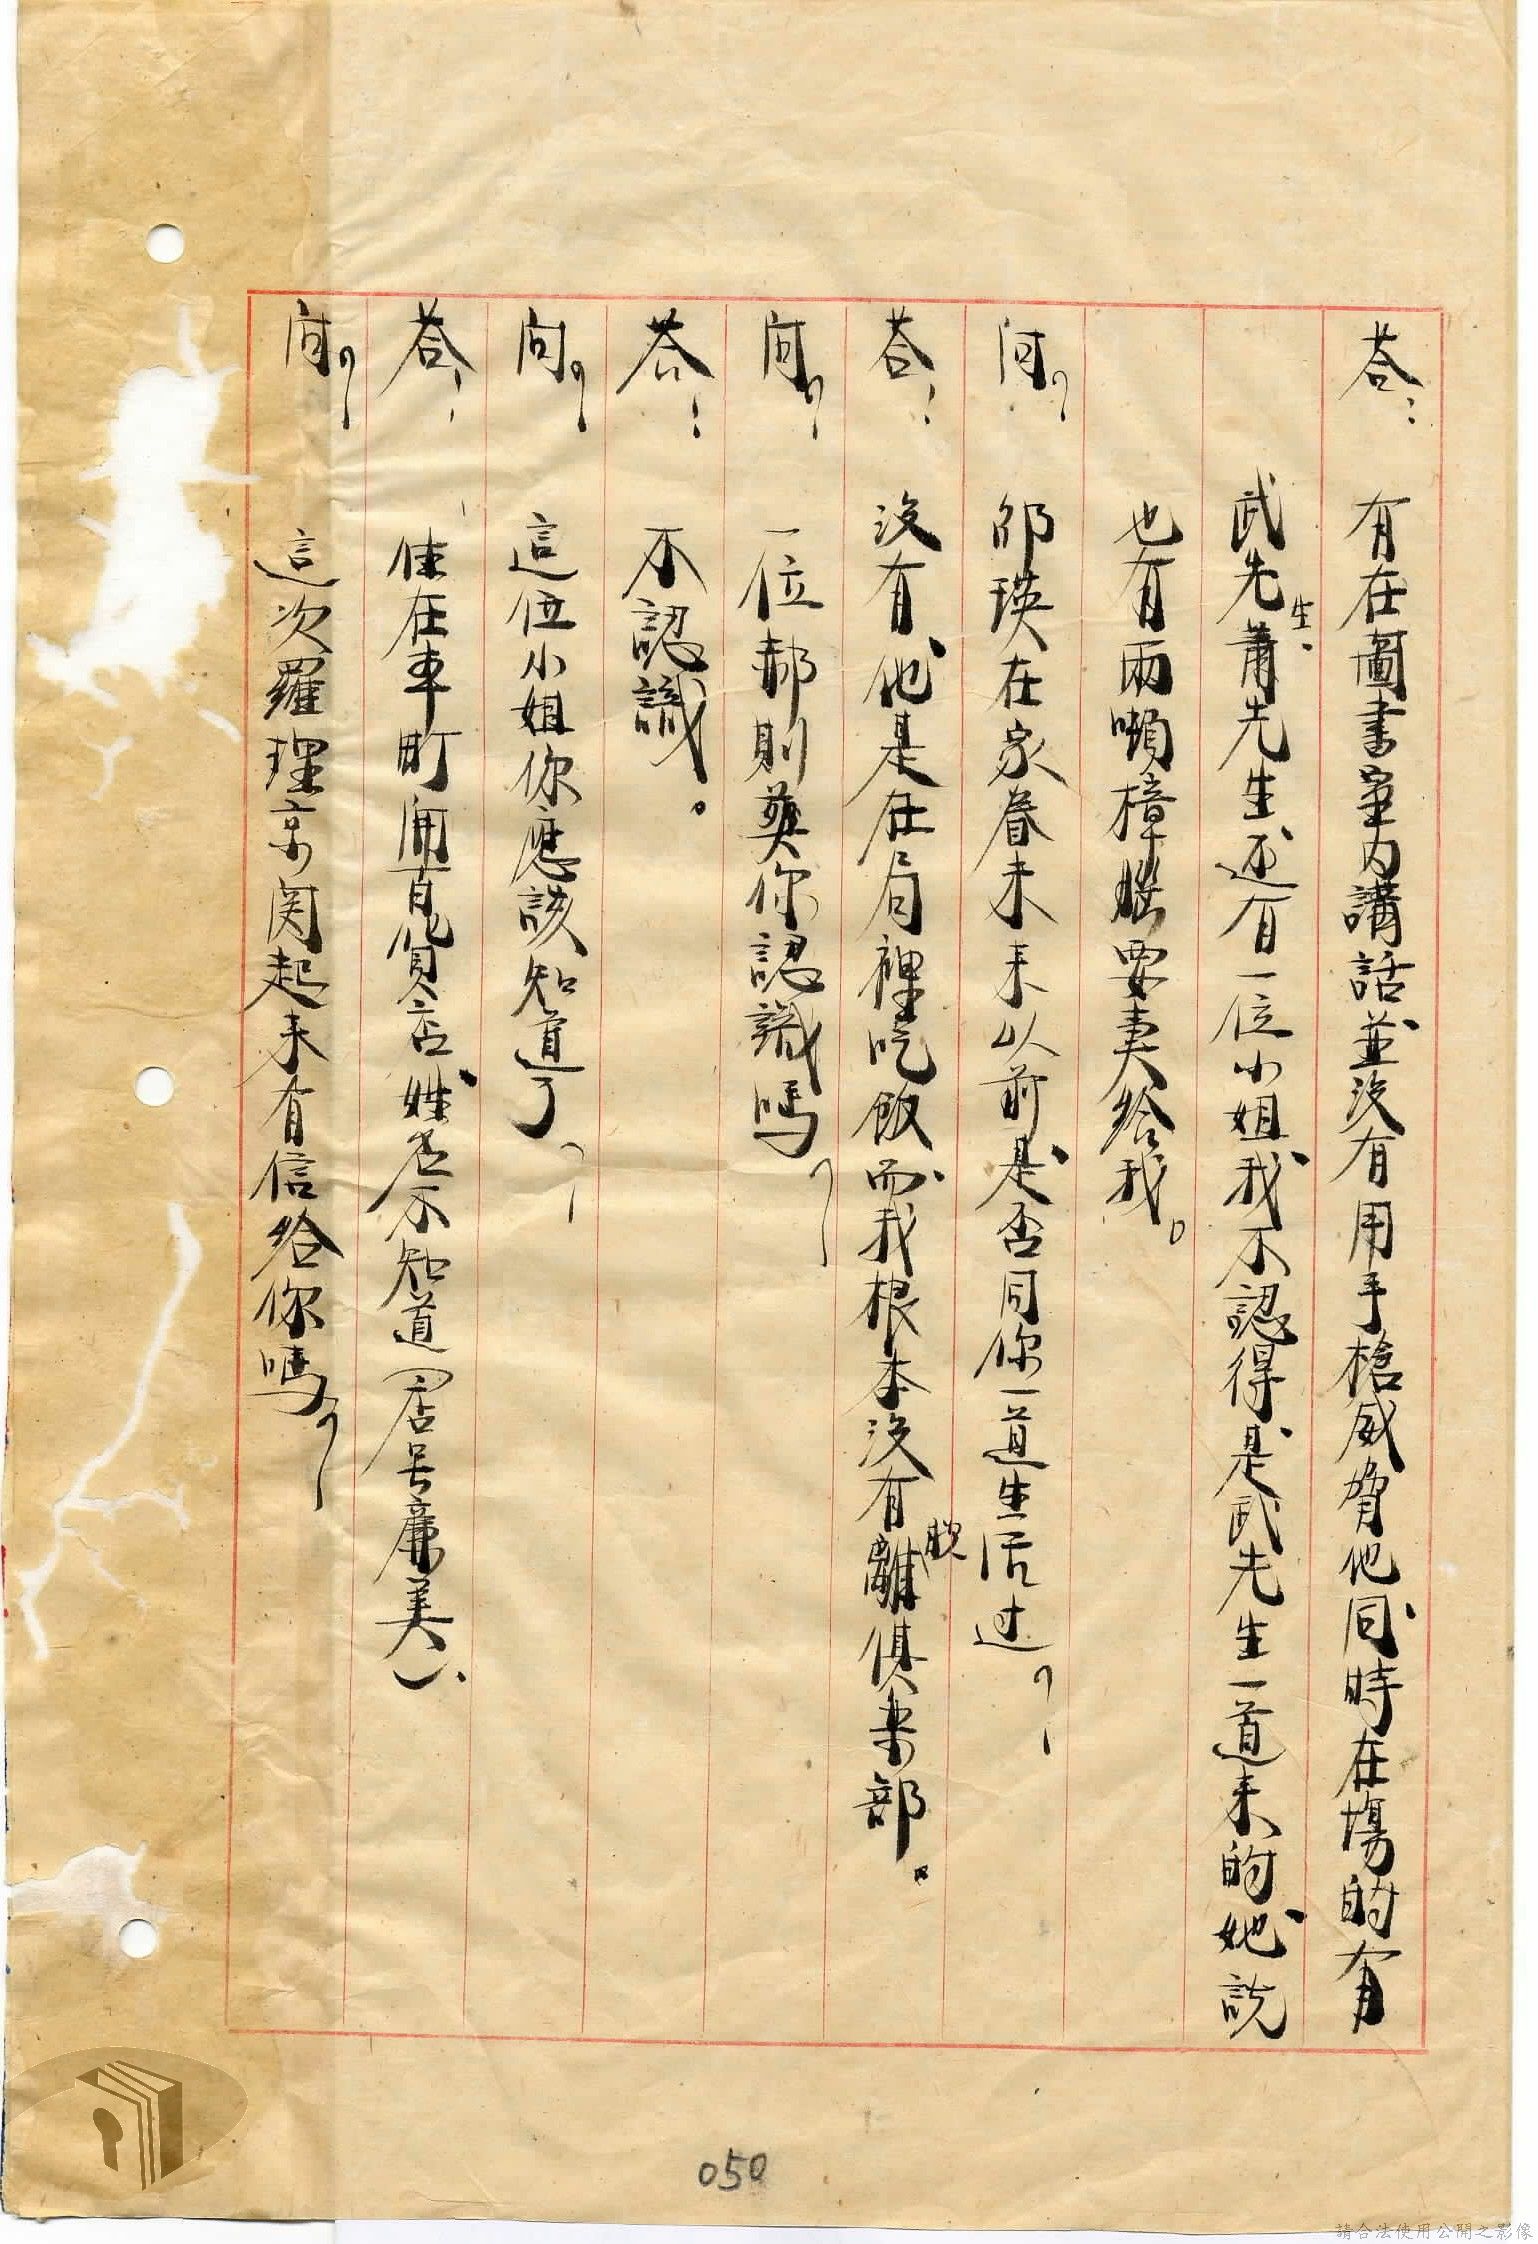 答：有在圖書室内講話並没有用手槍威脅他、同時在場的有
武先生、蕭先生还有一位小姐、我不認得、是武先生一道来的、她説
也有兩噸樟腦要卖给我。
问？邵瑛在家眷未来以前、是否同你一道生活过？
答：没有、他是在局裡吃飯、而我根本没有脱離俱楽部。
问？一位郝則英你認識嗎？
答：不認識。
问？這位小姐你應該知道了？
答：住在車町開百貨店、姓名不知道（店号廉美）、
问？這次羅理京関起来有信给你嗎？
050
請合法使用公開之影像